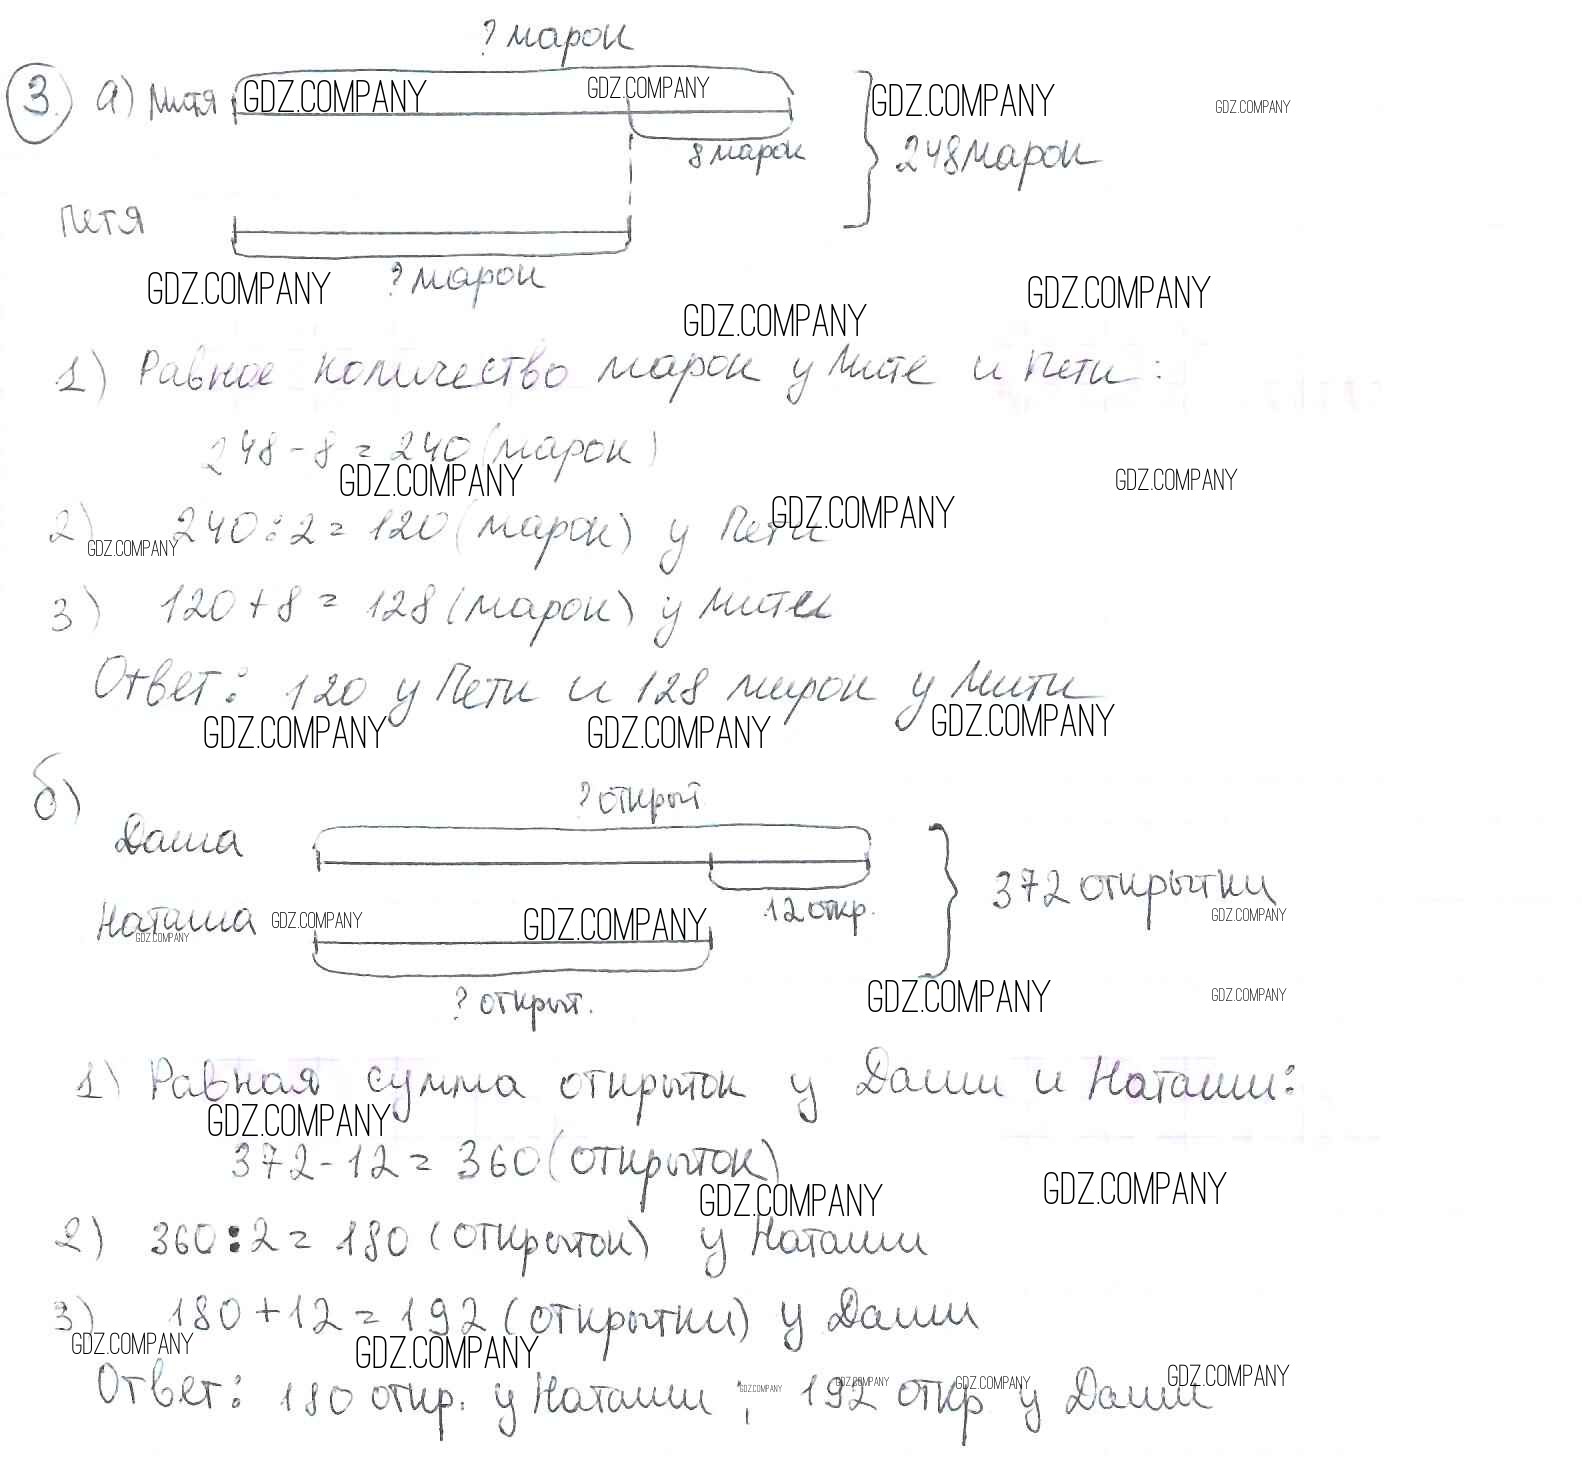 ? марок
3. а) Митя GDZ.COMPANY GDZ.COMPANY GDZ.COMPANY GDZ.COMPANY
8 марок 248 марок
Петя
? марок
GDZ.COMPANY GDZ.COMPANY GDZ.COMPANY
1) Равное количество марок у Мите и Пети:
248 - 8 = 240 (марок)
GDZ.COMPANY GDZ.COMPANY GDZ.COMPANY
2) 240 : 2 = 120 (марок) у Пети
GDZ.COMPANY
3) 120 + 8 = 128 (марок) у Мити
Ответ: 120 у Пети и 128 марок у Мити
GDZ.COMPANY GDZ.COMPANY GDZ.COMPANY
б)
? открыт
Даша
372 открытки
Наташа GDZ.COMPANY GDZ.COMPANY 12 откр. GDZ.COMPANY
GDZ.COMPANY
GDZ.COMPANY GDZ.COMPANY
? открыт.
1) Равная сумма открыток у Даши и Наташи:
GDZ.COMPANY
372 - 12 = 360 (открыток)
GDZ.COMPANY GDZ.COMPANY
2) 360 : 2 = 180 (открыток) у Наташи
3) 180 + 12 = 192 (открытки) у Даши
GDZ.COMPANY GDZ.COMPANY
Ответ: 180 откр. у Наташи ; 192 откр у Даши
GDZ.COMPANY GDZ.COMPANY GDZ.COMPANY GDZ.COMPANY